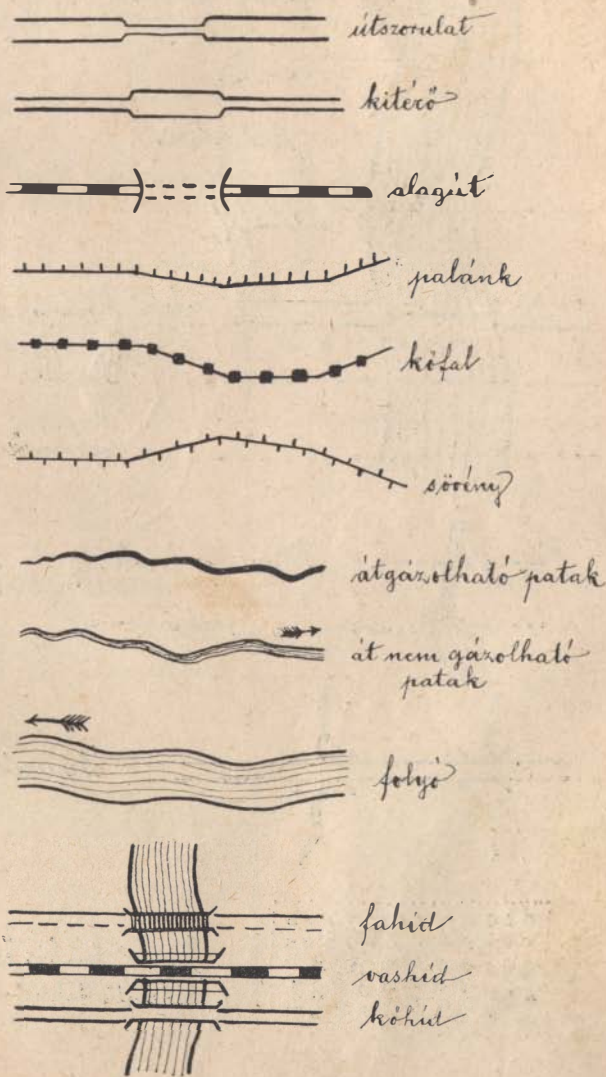 útszorulat
kitérő
alagút
palánk
kőfal
sövény
átgázolható patak
át nem gázolható
patak
folyó
fahíd
vashíd
kőhíd